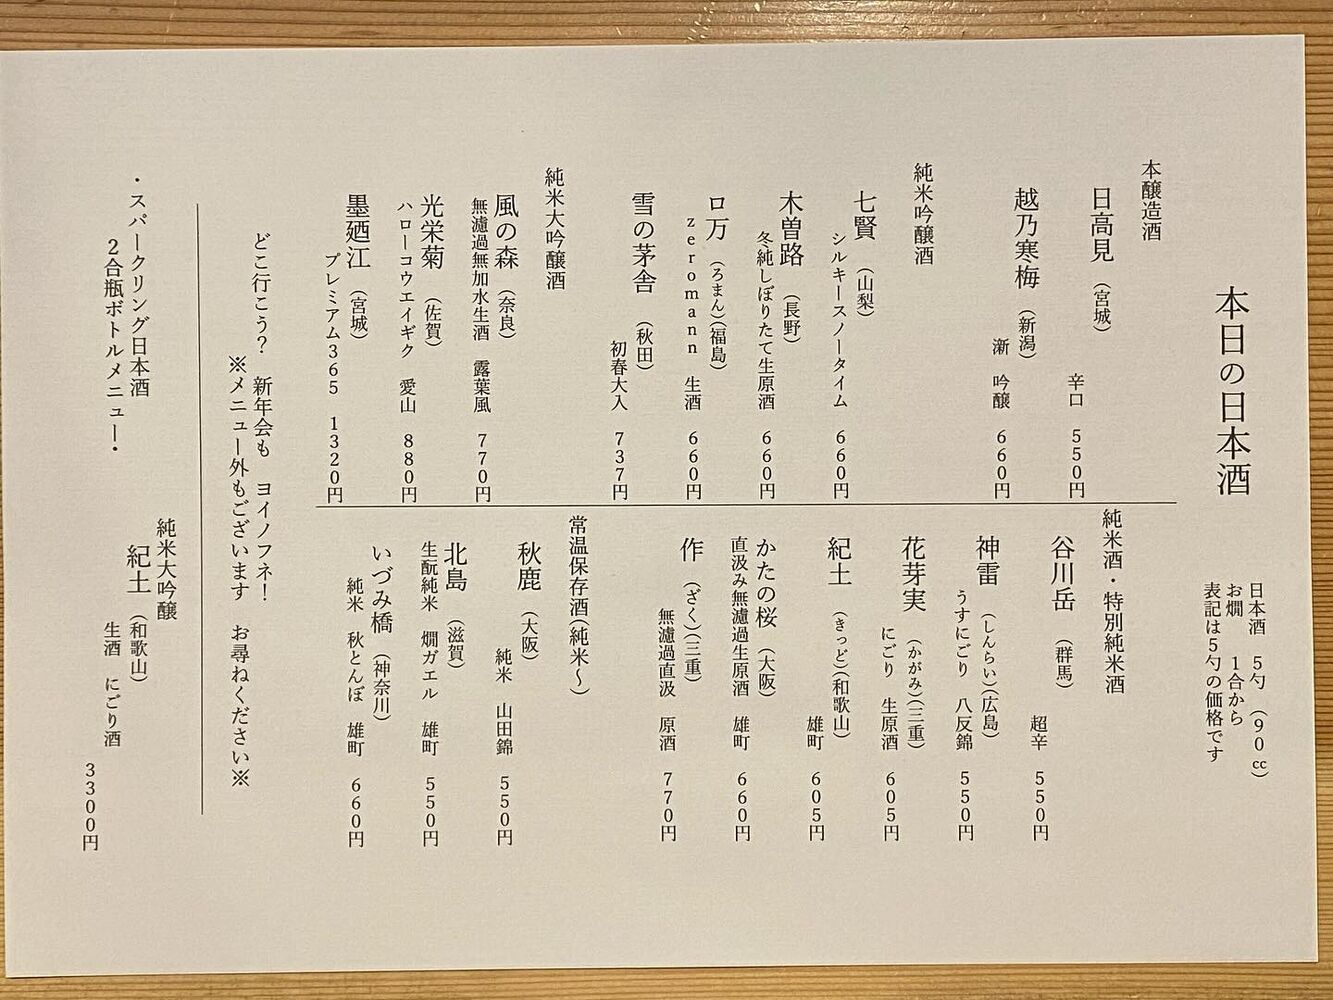 本日の日本酒
日本酒　5勺　(90㏄)
お燗　1合から
表記は5勺の価格です
本醸造酒
日高見　(宮城)
辛口　550円
越乃寒梅　(新潟)
漸　吟醸　660円
純米吟醸酒
七賢　(山梨)
シルキースノータイム　660円
木曽路　(長野)
冬純しぼりたて生原酒　660円
ロ万　(ろまん)(福島)
zeromann　生酒　660円
雪の茅舎　(秋田)
初春大入　737円
純米大吟醸酒
風の森　(奈良)
無濾過無加水生酒　露葉風　770円
光栄菊　(佐賀)
ハローコウエイギク　愛山　880円
墨廼江　(宮城)
プレミアム365　1320円
純米酒・特別純米酒
谷川岳　(群馬)
超辛　550円
神雷　(しんらい)(広島)
うすにごり　八反錦　550円
花芽実　(かがみ)(三重)
にごり　生原酒　605円
紀土　(きっど)(和歌山)
雄町　605円
かたの桜　(大阪)
直汲み無濾過生原酒　雄町　660円
作　(ざく)(三重)
無濾過直汲　原酒　770円
常温保存酒(純米〜)
秋鹿　(大阪)
純米　山田錦　550円
北島　(滋賀)
生酛純米　燗ガエル　雄町　550円
いづみ橋　(神奈川)
純米　秋とんぼ　雄町　660円
どこ行こう?　新年会も　ヨイノフネ!
※メニュー外もございます　お尋ねください※
・スパークリング日本酒
2合瓶ボトルメニュー・
純米大吟醸
紀土　(和歌山)
生酒　にごり酒
3300円